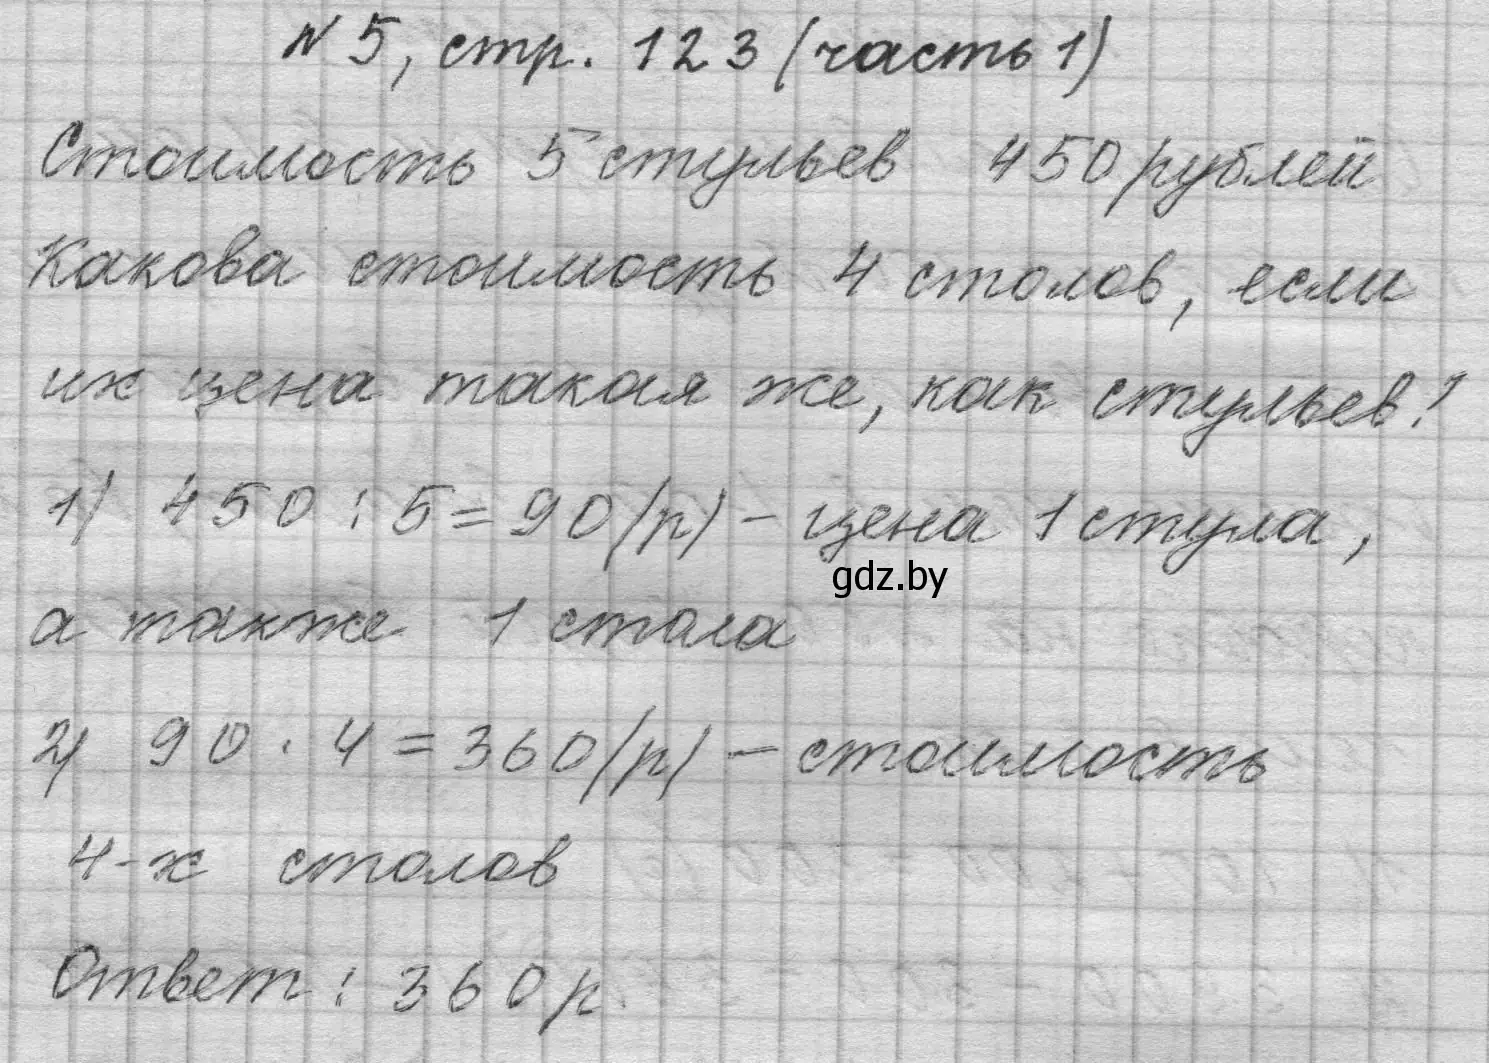 № 5, стр. 123 (часть 1)
Стоимость 5 стульев 450 рублей
Какова стоимость 4 столов, если
их цена такая же, как стульев?
1) 450 : 5 = 90 (р) – цена 1 стула,
gdz.by
а также 1 стола
2) 90 · 4 = 360 (р) – стоимость
4-х столов
Ответ : 360 р.